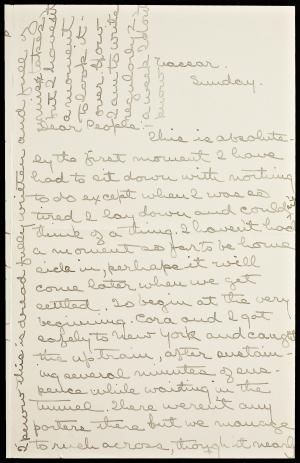 Vassar.
Sunday.
Dear People:-
This is absolute-
ly the first moment I have
had to sit down with nothing
to do except when I was so
tired I lay down and could n't
think of a thing. I haven't had
a moment so far to be home
sick in, perhaps it will
come later when we get
settled. To begin at the very
beginning. Cora and I got
safely to New York and caught
the up train, after sustain-
ing several minutes of sus-
pense while waiting in the
tunnel. There weren't any
porters there but we managed
to rush across, though it nearly
I know this is dreadfully written and full of
mistakes,
but I haven't
a moment
to look it
over. How
I am to write
a week I don't
know